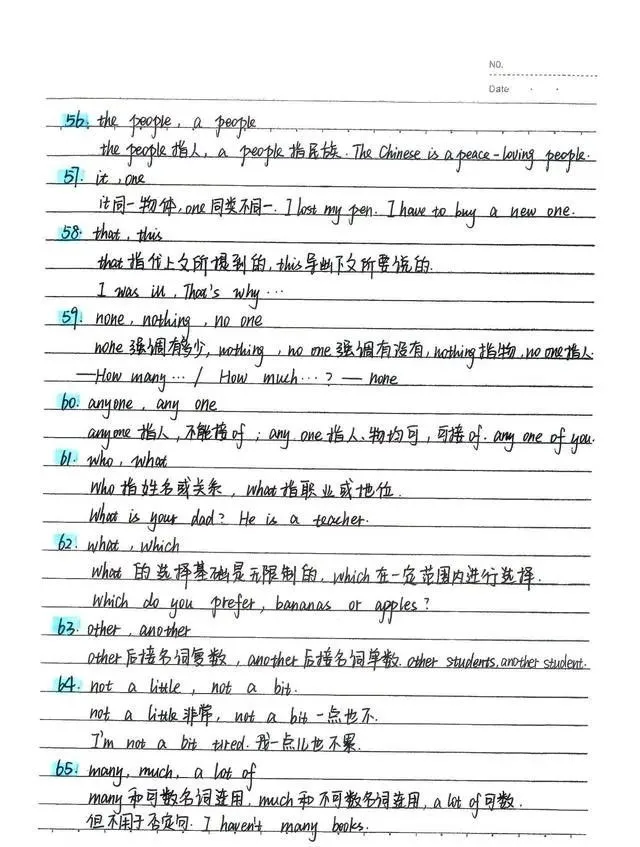 NO.
Date
56. the people, a people
the people 指人, a people 指民族. The Chinese is a peace-loving people.
57. it, one
it同一物体, one同类不同一. I lost my pen. I have to buy a new one.
58. that, this
that 指代上文所提到的, this导出下文所要说的.
I was ill. That's why…
59. none, nothing, no one
none 强调有多少, nothing, no one 强调有没有, nothing指物, no one指人.
—How many… / How much…? — none
60. anyone, any one
anyone 指人, 不能接of; any one指人、物均可, 可接of. any one of you.
61. who, what
who 指姓名或关系, what指职业或地位.
What is your dad? He is a teacher.
62. what, which
what 的选择基础是无限制的, which在一定范围内进行选择.
which do you prefer, bananas or apples?
63. other, another
other后接名词复数, another后接名词单数. other students, another student.
64. not a little, not a bit.
not a little 非常, not a bit 一点也不.
I'm not a bit tired. 我一点儿也不累.
65. many, much, a lot of
many 和可数名词连用, much和不可数名词连用, a lot of可数.
但不用于否定句. I haven't many books.